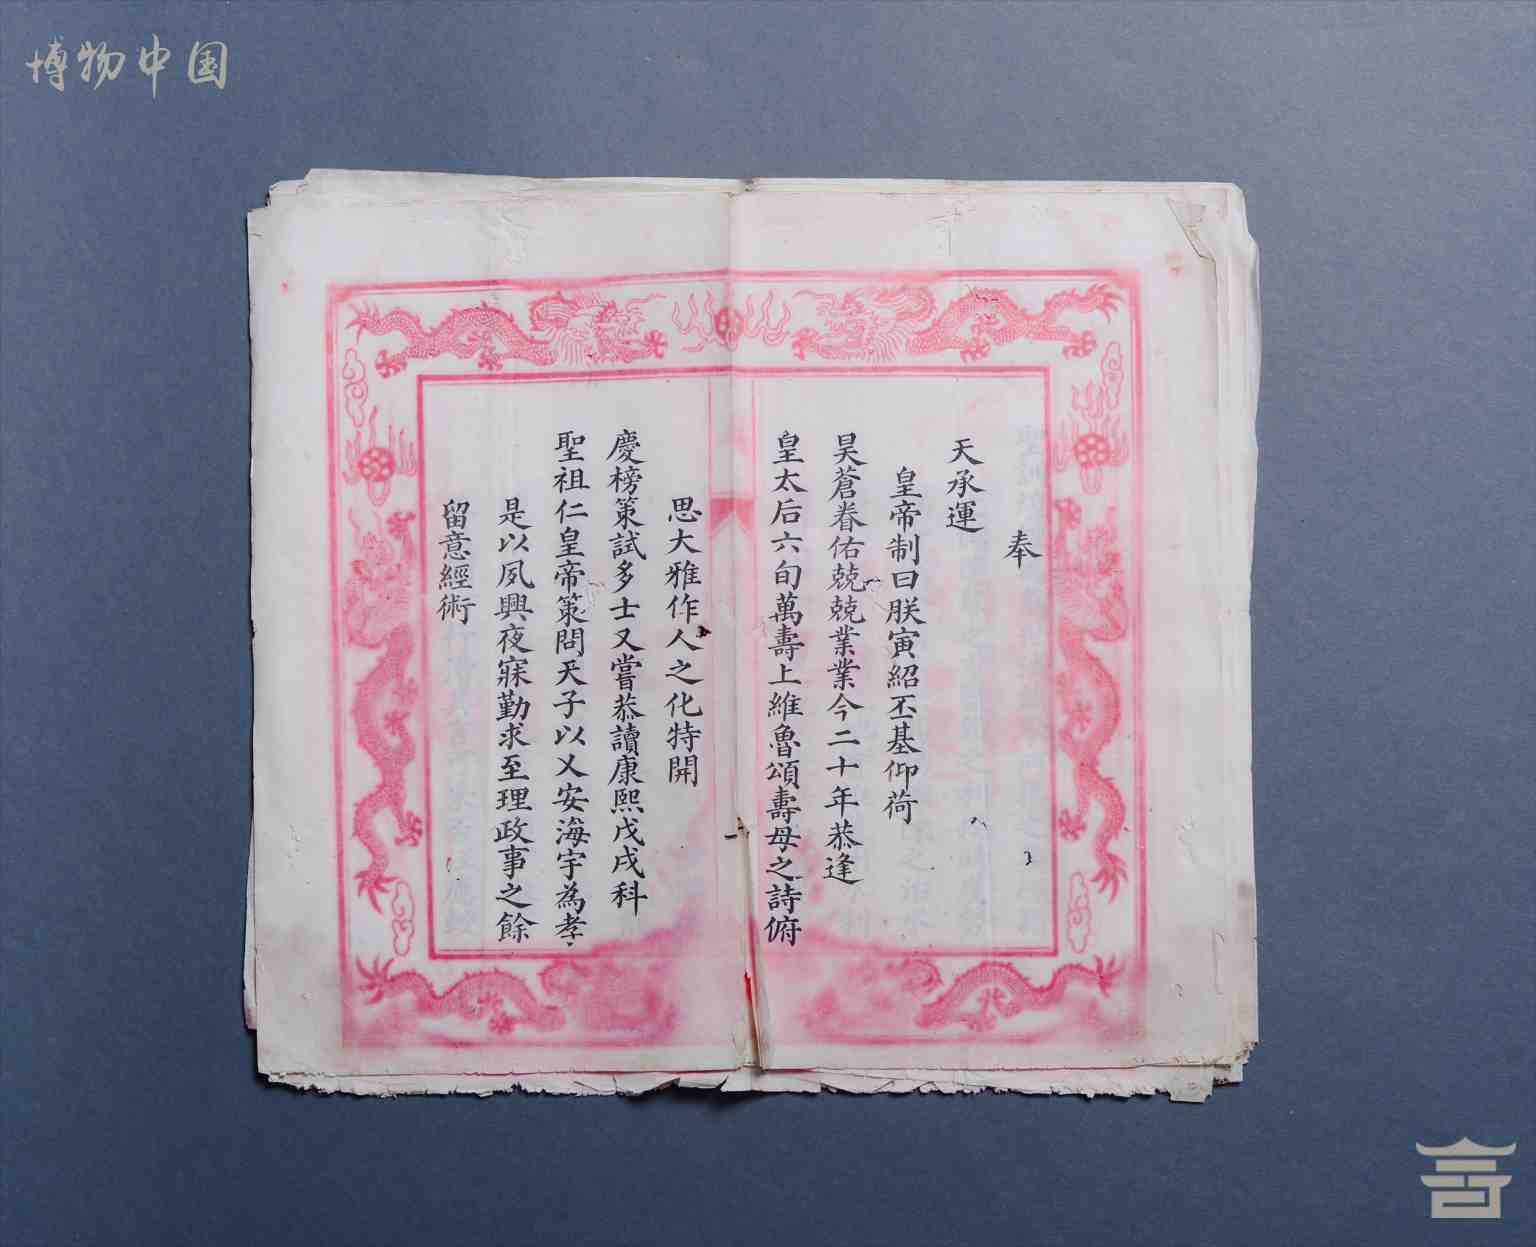 博物中国
奉
天承運
皇帝制曰朕寅紹丕基仰荷
昊蒼眷佑兢兢業業今二十年恭逢
皇太后六旬萬壽上維魯頌壽母之詩俯
思大雅作人之化特開
慶榜策試多士又嘗恭讀康熙戊戌科
聖祖仁皇帝策問天子以乂安海宇為孝
是以夙興夜寐勤求至理政事之餘
留意經術